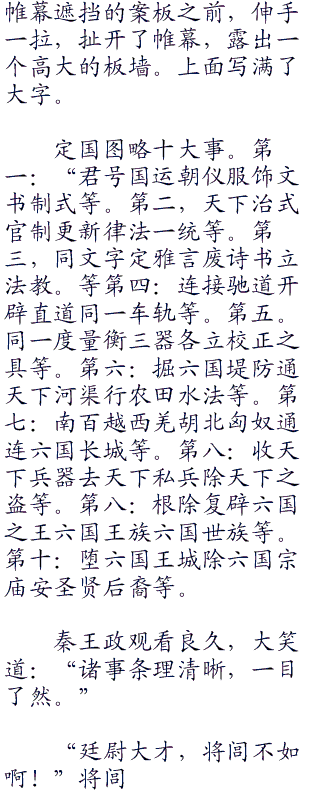 帷幕遮挡的案板之前，伸手
一拉，扯开了帷幕，露出一
个高大的板墙。上面写满了
大字。
定国图略十大事。第
一：“君号国运朝仪服饰文
书制式等。第二，天下治式
官制更新律法一统等。第
三，同文字定雅言废诗书立
法教。等第四：连接驰道开
辟直道同一车轨等。第五。
同一度量衡三器各立校正之
具等。第六：掘六国堤防通
天下河渠行农田水法等。第
七：南百越西羌胡北匈奴通
连六国长城等。第八：收天
下兵器去天下私兵除天下之
盗等。第八：根除复辟六国
之王六国王族六国世族等。
第十：堕六国王城除六国宗
庙安圣贤后裔等。
秦王政观看良久，大笑
道：“诸事条理清晰，一目
了然。”
“廷尉大才，将闾不如
啊！”将闾